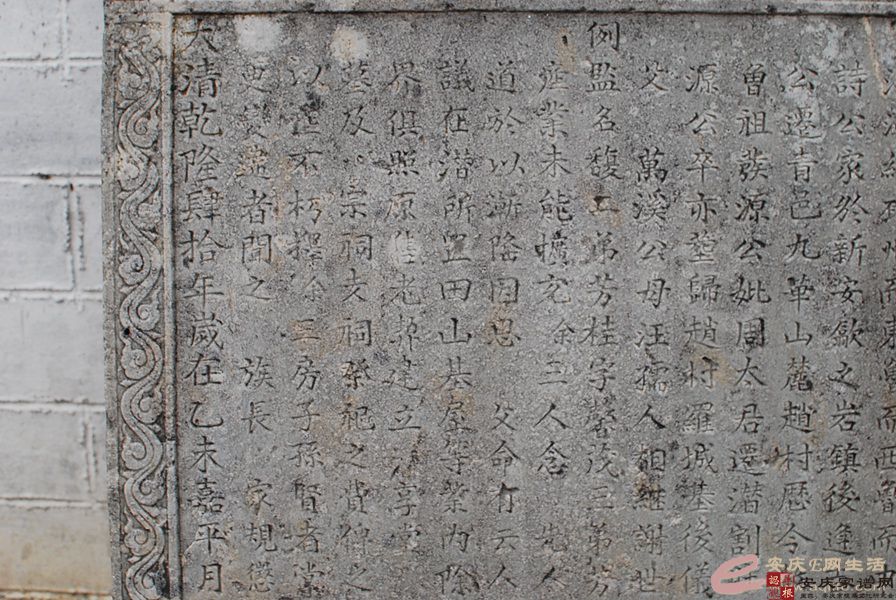 詩公家於新安歙之岩鎮後逢
公遷青邑九華山麓趙村歷今
曽祖發源公妣周太君還潜割
源公卒亦塟歸趙村羅城基後儀
父 萬溪公母汪孺人相繼謝世
例監名馥二弟芳桂字馨茂三弟芳
産業未能擴充 三人念 先人
道於以漸隆因思 父命有云人
議在潜所置田山基屋等業内除
界俱照原售老契建立 享堂
墓及 宗祠支祠祭祀之費俾之
以垂不朽擇 三房子孫賢者當
更變違者聞之 族長 家規懲
大清乾隆肆拾年歲在乙未嘉平月
安庆E网生活
安庆家谱网